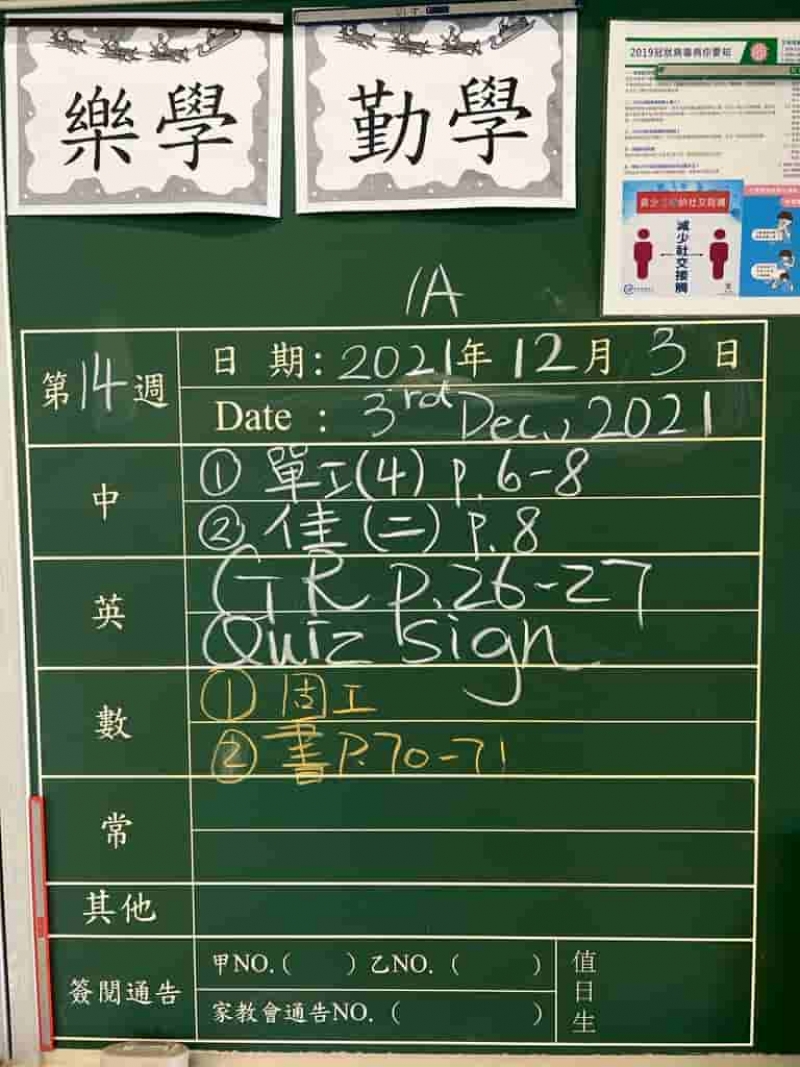 樂學
勤學
2019冠狀病毒病你要知
減少社交接觸
1A
第14週
日 期: 2021年 12月 3 日
Date : 3rd Dec., 2021
中
① 單工(4) P.6-8
② 佳(二) P.8
英
GR P.26-27
Quiz sign
數
① 周工
② 書P.70-71
常
其他
簽閱通告
甲NO.( ) 乙NO. ( )
家教會通告NO. ( )
值日生